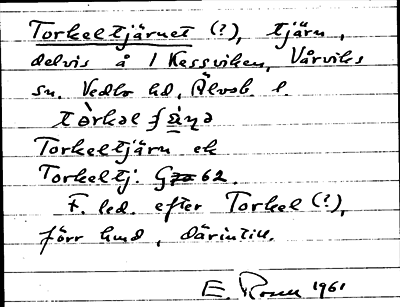 Torkeltjärnet (?), tjärn,
delvis å 1 Kessviken, Vårviks
sn. Vedbo hd, Älvsb. l.
Torkeltjärn ek
Torkeltj: G 62.
F. led. efter Torkel (?),
förr hmd, därintill.
E. Rosen 1961